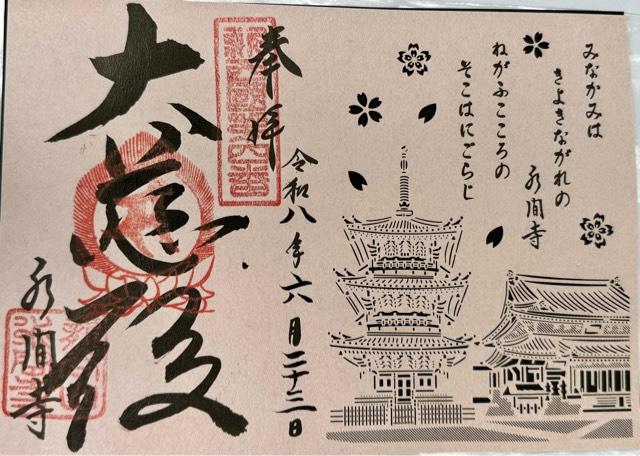 みなかみは
きよきながれの
水間寺
ねがふこころの
そこはにごらじ
奉拝
令和八年六月二十三日
大慈殿
水間寺